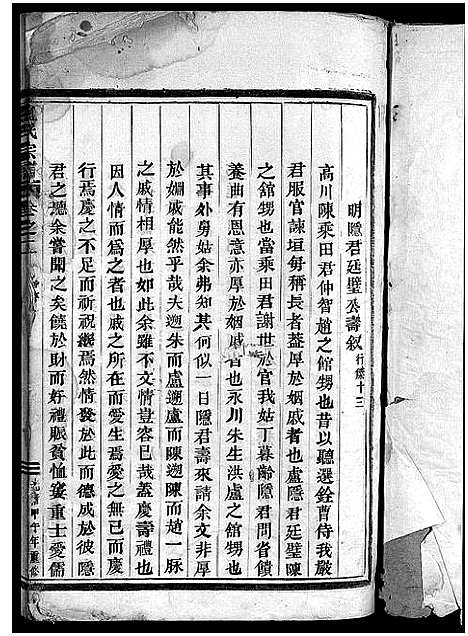 明隱君廷璧公壽叙 行儀十三
高川陳乘田君仲智趙之館甥也昔以聽選銓曹侍我嚴
君服官諫垣每稱長者蓋厚於姻戚者也盧隱君廷璧陳
之館甥也當乘田君謝世於官我姑丁暮齡隱君問省饋
養曲有恩意亦厚於姻戚者也永川朱生洪盧之館甥也
其事外舅姑余弗知其何似一日隱君壽來請余文非厚
於姻戚能然乎哉夫遡朱而盧遡盧而陳遡陳而趙一脉
之戚情相厚也如此余雖不文情豈容已哉蓋慶壽禮也
因人情而為之者也戚之所在而愛生焉愛之無已而慶
行焉慶之不足而祈祝繼焉然情發於此而德感於彼隱
君之德余嘗聞之矣饒於財而好禮賑貧恤寡重士愛儒
氏宗譜 卷之二
光緒甲午年重修